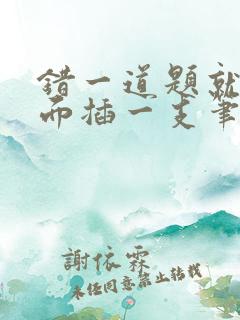 錯一道題就
而插一支筆
謝依霖
未經同意禁止轉載